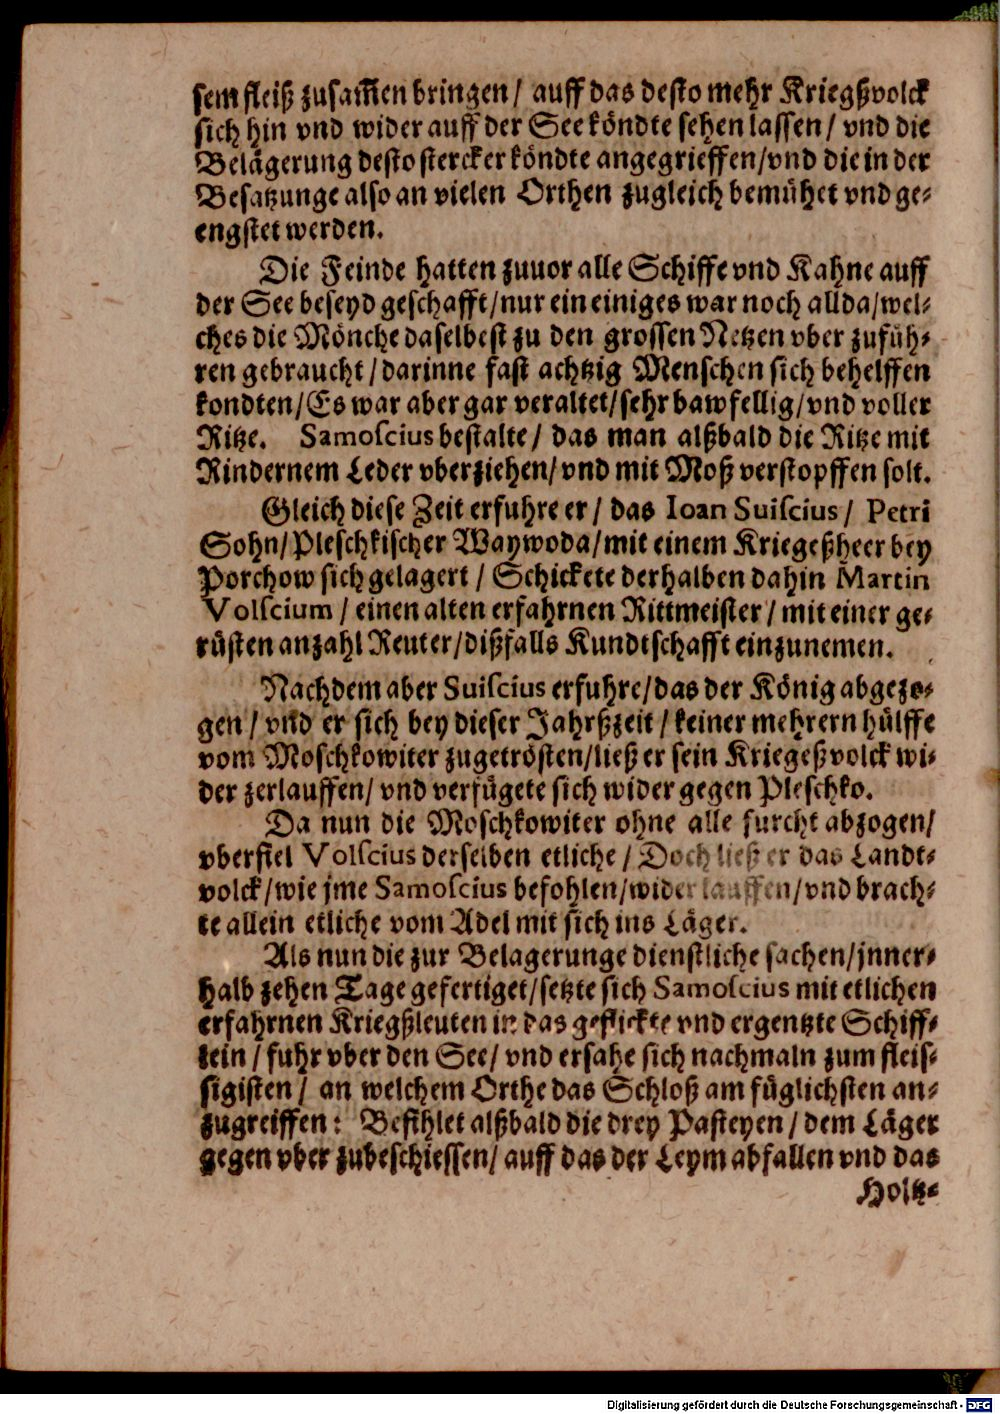 sem fleiß zusam̃en bringen / auff das desto mehr Kriegßvolck
sich hin vnd wider auff der See köndte sehen lassen / vnd die
Belägerung desto stercker köndte angegrieffen / vnd die in der
Besatzunge also an vielen Orthen zugleich bemühet vnd ge-
engstet werden.
Die Feinde hatten zuuor alle Schiffe vnd Kahne auff
der See beseyd geschafft / nur ein einiges war noch allda / wel-
ches die Mönche daselbest zu den grossen Netzen vber zufüh-
ren gebraucht / darinne fast achtzig Menschen sich behelffen
kondten / Es war aber gar veraltet / sehr bawfellig / vnd voller
Ritze. Samoscius bestalte / das man alßbald die Ritze mit
Rindernem Leder vberziehen / vnd mit Moß verstopffen solt.
Gleich diese Zeit erfuhre er / das Ioan Suiscius / Petri
Sohn / Pleschkischer Waywoda / mit einem Kriegeßheer bey
Porchow sich gelagert / Schickete derhalben dahin Martin
Volscium / einen alten erfahrnen Rittmeister / mit einer ge-
rüsten anzahl Reuter / dißfalls Kundtschafft einzunemen.
Nachdem aber Suiscius erfuhre / das der König abgezo-
gen / vnd er sich bey dieser Jahrßzeit / keiner mehrern hülffe
vom Moschkowiter zugetrösten / ließ er sein Kriegeßvolck wi-
der zerlauffen / vnd verfügete sich wider gegen Pleschko.
Da nun die Moschkowiter ohne alle furcht abzogen /
vberfiel Volscius derselben etliche / Doch ließ er das Landt-
volck / wie jme Samoscius befohlen / wider lauffen / vnd brach-
te allein etliche vom Adel mit sich ins Läger.
Als nun die zur Belagerunge dienstliche sachen / jnner-
halb zehen Tage gefertiget / setzte sich Samoscius mit etlichen
erfahrnen Kriegßleuten in das geflickte vnd ergentzte Schiff-
lein / fuhr vber den See / vnd ersahe sich nachmaln zum fleis-
sigisten / an welchem Orthe das Schloß am füglichsten an-
zugreiffen: Befihlet alßbald die drey Pasteyen / dem Läger
gegen vber zubeschiessen / auff das der Leym abfallen vnd das
Holtz-
Digitalisierung gefördert durch die Deutsche Forschungsgemeinschaft - DFG